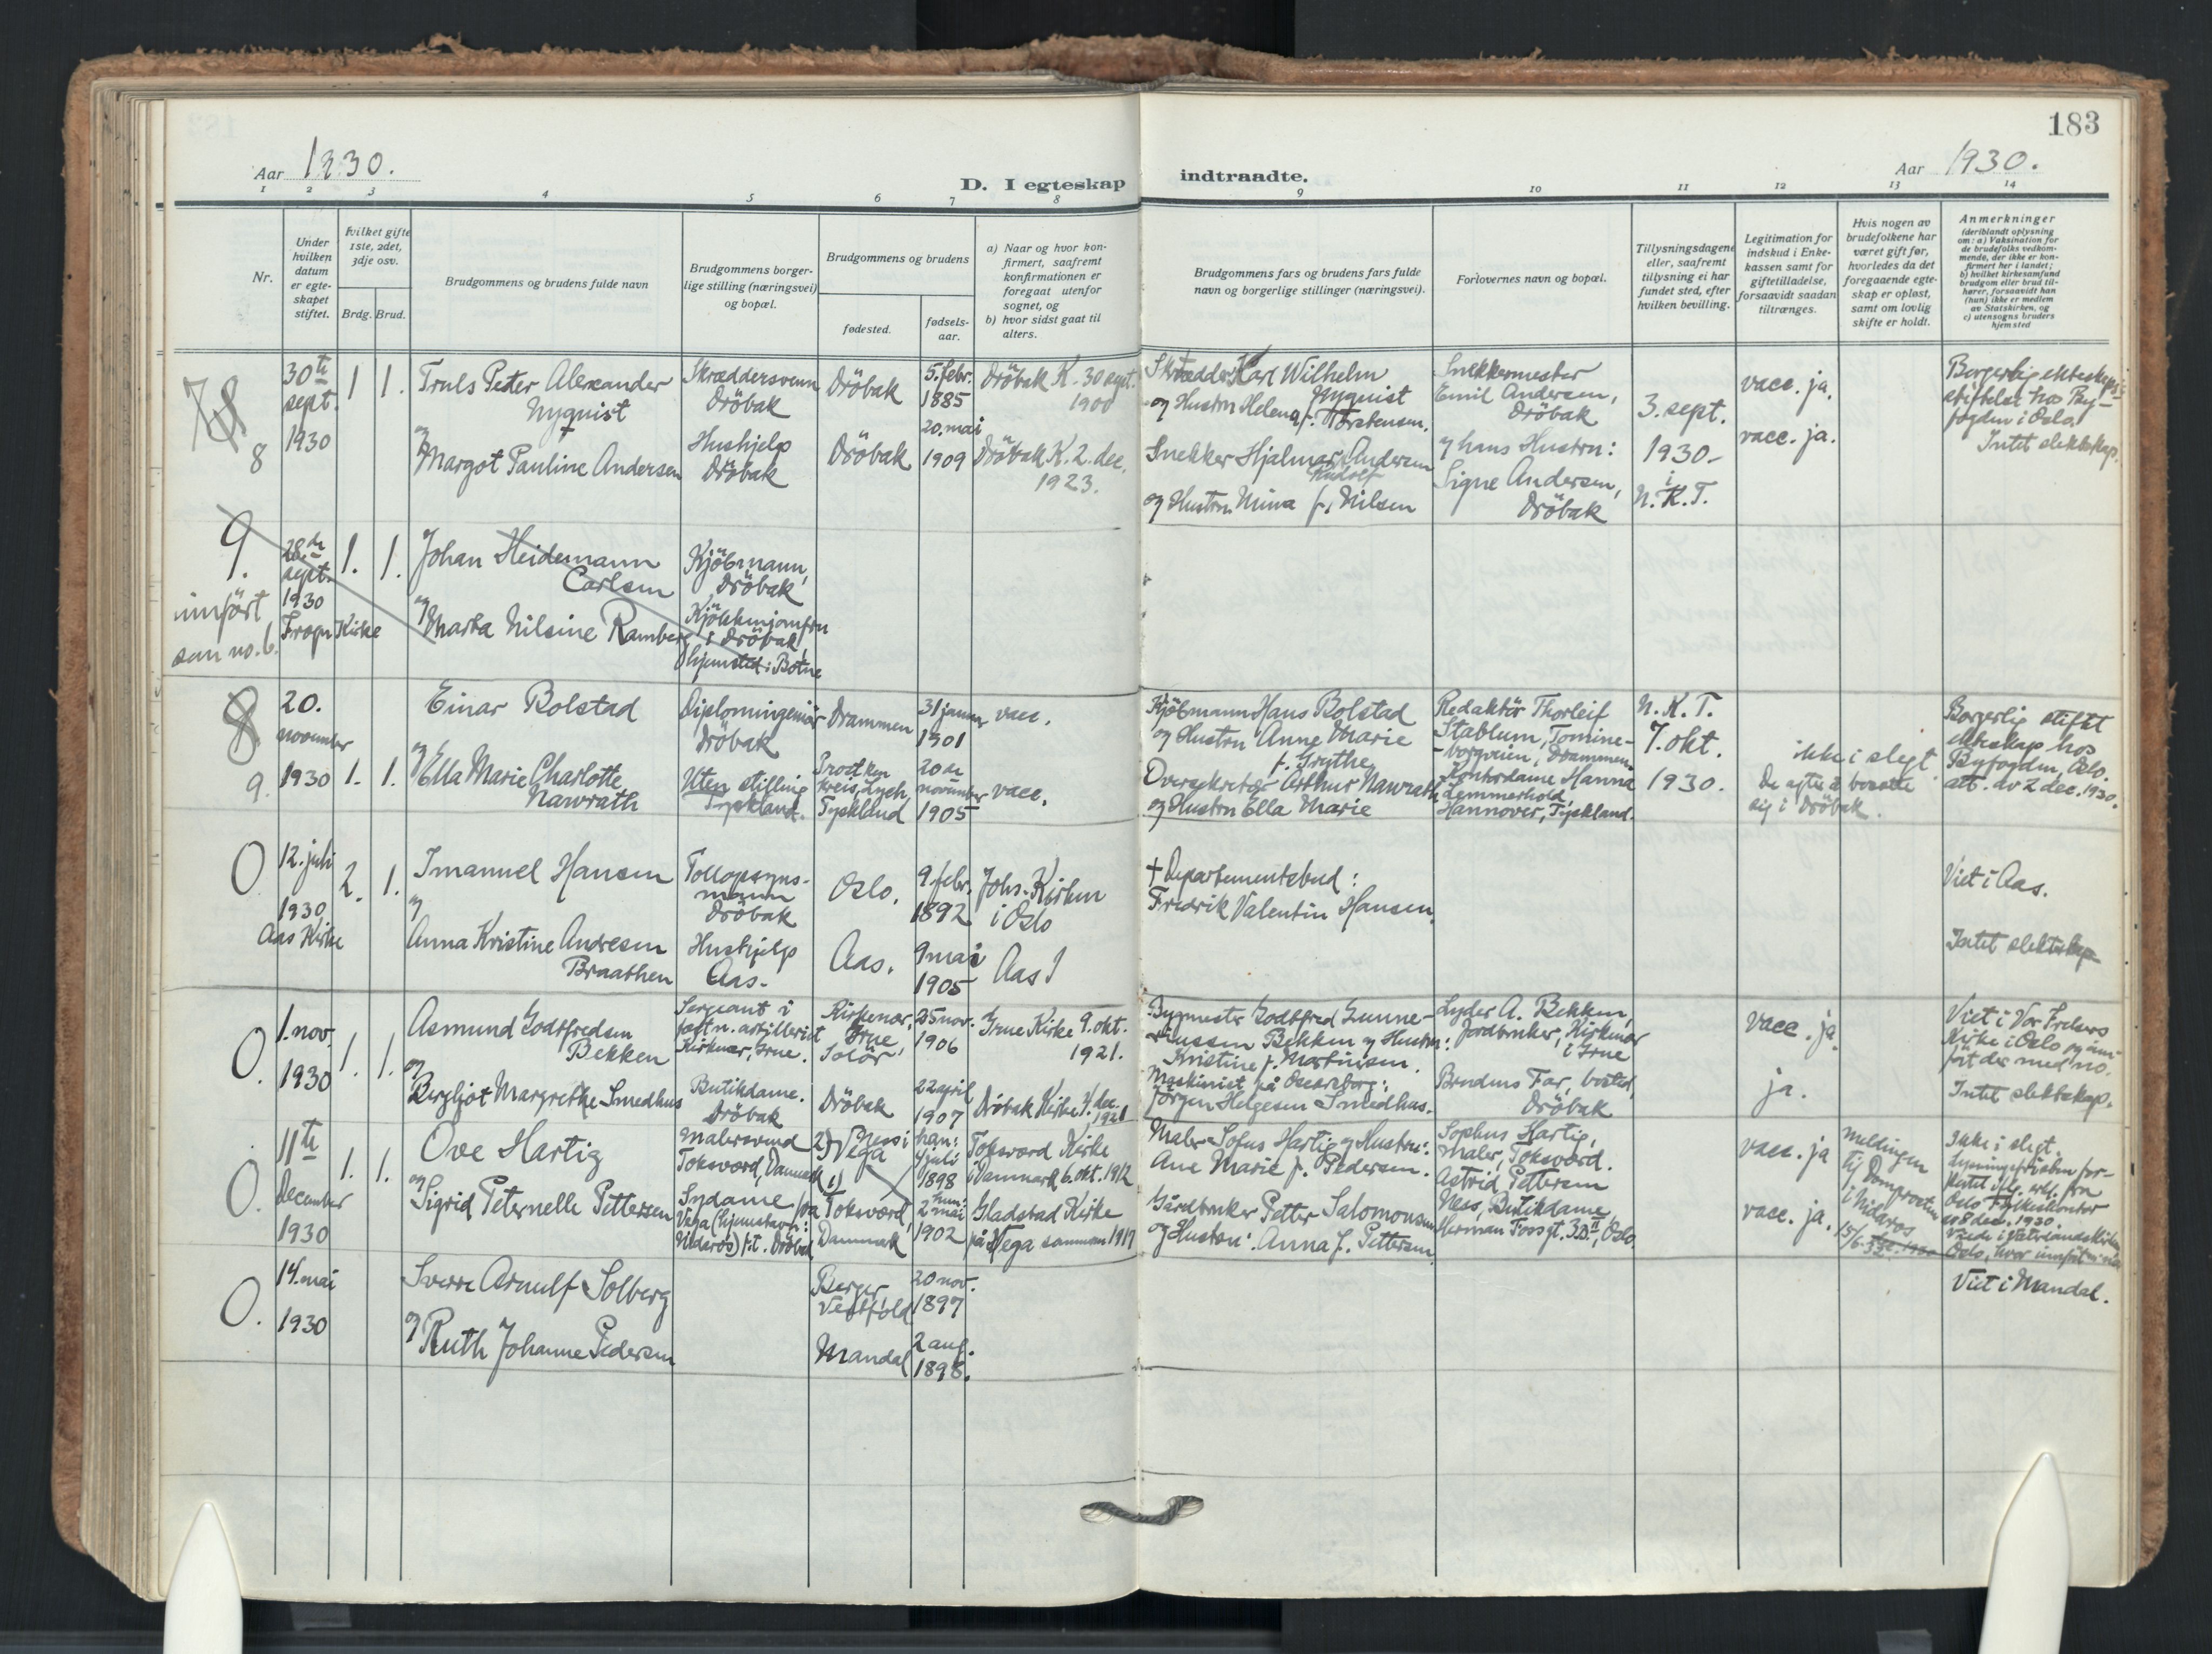 183
Aar 1930.
D. I egteskap indtraadte.
Aar 1930.
1 2 3 4 5 6 7 8 9 10 11 12 13 14
Nr.
Under hvilken datum er egteskapet stiftet.
Hvilket gifte 1ste, 2det, 3dje osv.
Brdg. Brud.
Brudgommens og brudens fulde navn
Brudgommens borgerlige stilling (næringsvei) og bopæl.
Brudgommens og brudens
fødested.
fødselsaar.
a) Naar og hvor konfirmert, saafremt konfirmationen er foregaat utenfor sognet, og
b) hvor sidst gaat til alters.
Brudgommens fars og brudens fars fulde navn og borgerlige stillinger (næringsvei).
Forlovernes navn og bopæl.
Tillysningsdagene eller, saafremt tillysning ei har fundet sted, efter hvilken bevilling.
Legitimation for indskud i Enkekassen samt for giftetilladelse, forsaavidt saadan tiltrænges.
Hvis nogen av brudefolkene har været gift før, hvorledes da det foregaaende egteskap er opløst, samt om lovlig skifte er holdt.
Anmerkninger
(deriblandt oplysning om: a) Vaksination for de brudefolks vedkommende, der ikke er konfirmert her i landet;
b) hvilket kirkesamfund brudgom eller brud tilhører, forsaavidt han (hun) ikke er medlem av Statskirken, og
c) utensogns bruders hjemsted
8
30te sept. 1930
1 1.
Truls Peter Alexander Nyquist
og Margot Pauline Andersen
Skræddersvenn Dröbak
Hushjelp Dröbak
Dröbak
Dröbak
5. febr. 1885
20. mai 1909
Dröbak K. 30 sept. 1900
Dröbak K. 2. dec. 1923.
Skrædder Karl Wilhelm Nyquist
og Hustru Helena f. Torstensen.
Snekker Hjalmar Rudolf Andersen
og Hustru Mina f. Nilsen
Snekkermester Emil Andersen, Dröbak
og hans Hustru: Signe Andersen, Dröbak
3. sept. 1930 i N.K.T.
vacc. ja.
vacc. ja.
Borgerlig ekteskapsstiftelse hos Byfogden i Oslo
Intet slektskap.
9.
innfört som no. 6.
28de sept. 1930
Frogn Kirke
1. 1.
Johan Heidemann Carlsen
og Marta Nilsine Ramberg
Kjöbmann, Dröbak
Kjökkenjomfru i Dröbak, hjemsted i Botne
8
9.
20. november 1930
1. 1.
Einar Bolstad
og Ella Marie Charlotte Nawrath
Diplomingeniör Dröbak
Uten stilling Tyskland.
Drammen
Prostken Kreis Lyck, Tyskland
31 januar 1901
20de november 1905
vacc.
vacc.
Kjöbmann Hans Bolstad
og Hustru Anne Marie f. Grythe
Oversekretær Arthur Nawrath
og Hustru Ella Marie
Redaktör Thorleif Stablum, Tomineborgveien, Drammen.
Kontordame Hanna Lemmerhold, Hannover, Tyskland.
N.K.T. 7. okt. 1930.
ikke i slegt
De agter å bosætte sig i Dröbak.
Borgerlig stiftet ekteskap hos Byfogden, Oslo.
att. av 2 dec. 1930.
0.
12. juli 1930
Aas Kirke
2. 1.
Imanuel Hansen
og Anna Kristine Andresen Braathen
Tollopsynsmann Dröbak
Hushjelp Aas.
Oslo.
Aas.
9 febr. 1892
9 mai 1905
Johs. Kirken i Oslo
Aas
+ Departementsbud:
Fredrik Valentin Hansen.
Viet i Aas.
Intet slektskap
0.
1. nov. 1930
1. 1.
Asmund Godtfredsen Bekken
og Bergljot Margrethe Smedhus
Sersjant i festn. artilleriet Kirkenær, Grue.
Butikdame. Dröbak
Kirkenær, Grue, Solör
Dröbak
25 nov. 1906
22 april 1907
Grue Kirke 9. okt. 1921.
Dröbak Kirke 4. dec. 1921
Bygmester Godtfred Gunneriussen Bekken og Hustru: Kristine f. Martinsen.
Maskinist på Oscarsborg: Jörgen Helgesen Smedhus.
Lyder A. Bekken, Jordbruker, Kirkenær i Grue
Brudens Far, bosted, Dröbak
vacc. ja.
ja.
Viet i Vor Frelsers Kirke i Oslo og innfört der med no.
Intet slektskap.
0.
11te december 1930
1. 1.
Ove Hartig
og Sigrid Peternelle Pettersen
Malersvend Toksværd, Danmark
Sydame fra Vega (hjemstavn: Nidaros) p.t. Dröbak
2) Ness i Vega
1) Toksværd, Danmark
han: 4 juli 1898
hun: 2 mai 1902
Toksværd Kirke i Danmark 6. okt. 1912
Gladstad Kirke på Vega sommeren 1917
Maler Sofus Hartig og Hustru: Ane Marie f. Pedersen.
Gårdbruker Petter Salomonsen og Hustru: Anna f. Pettersen
Sophus Hartig, Maler, Toksværd.
Astrid Pettersen Ness, Butikdame, Herman Fossgt. 3B II, Oslo.
vacc. ja
vacc. ja.
Meldingen til Domprosten i Nidaros
Ikke i slegt.
Viet i Mandal.
0.
14. mai 1930
Sverre Arnulf Solberg
og Ruth Johanne Pedersen
Berger, Vestfold
Mandal
20 nov. 1897
2 aug. 1898.